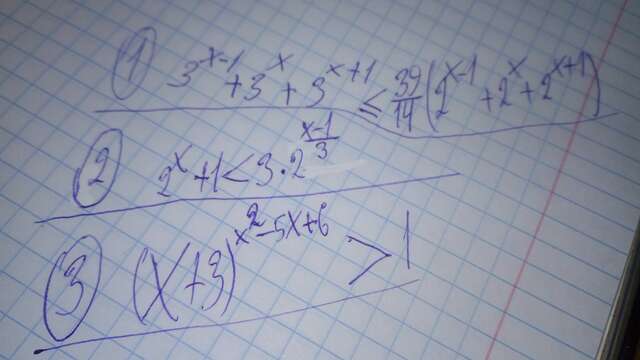 ① 3^{x-1} + 3^x + 3^{x+1} ≤ \frac{39}{14} (2^{x-1} + 2^x + 2^{x+1})
② 2^x + 1 < 3 · 2^{\frac{x-1}{3}}
③ (x+3)^{x^2-5x+6} > 1